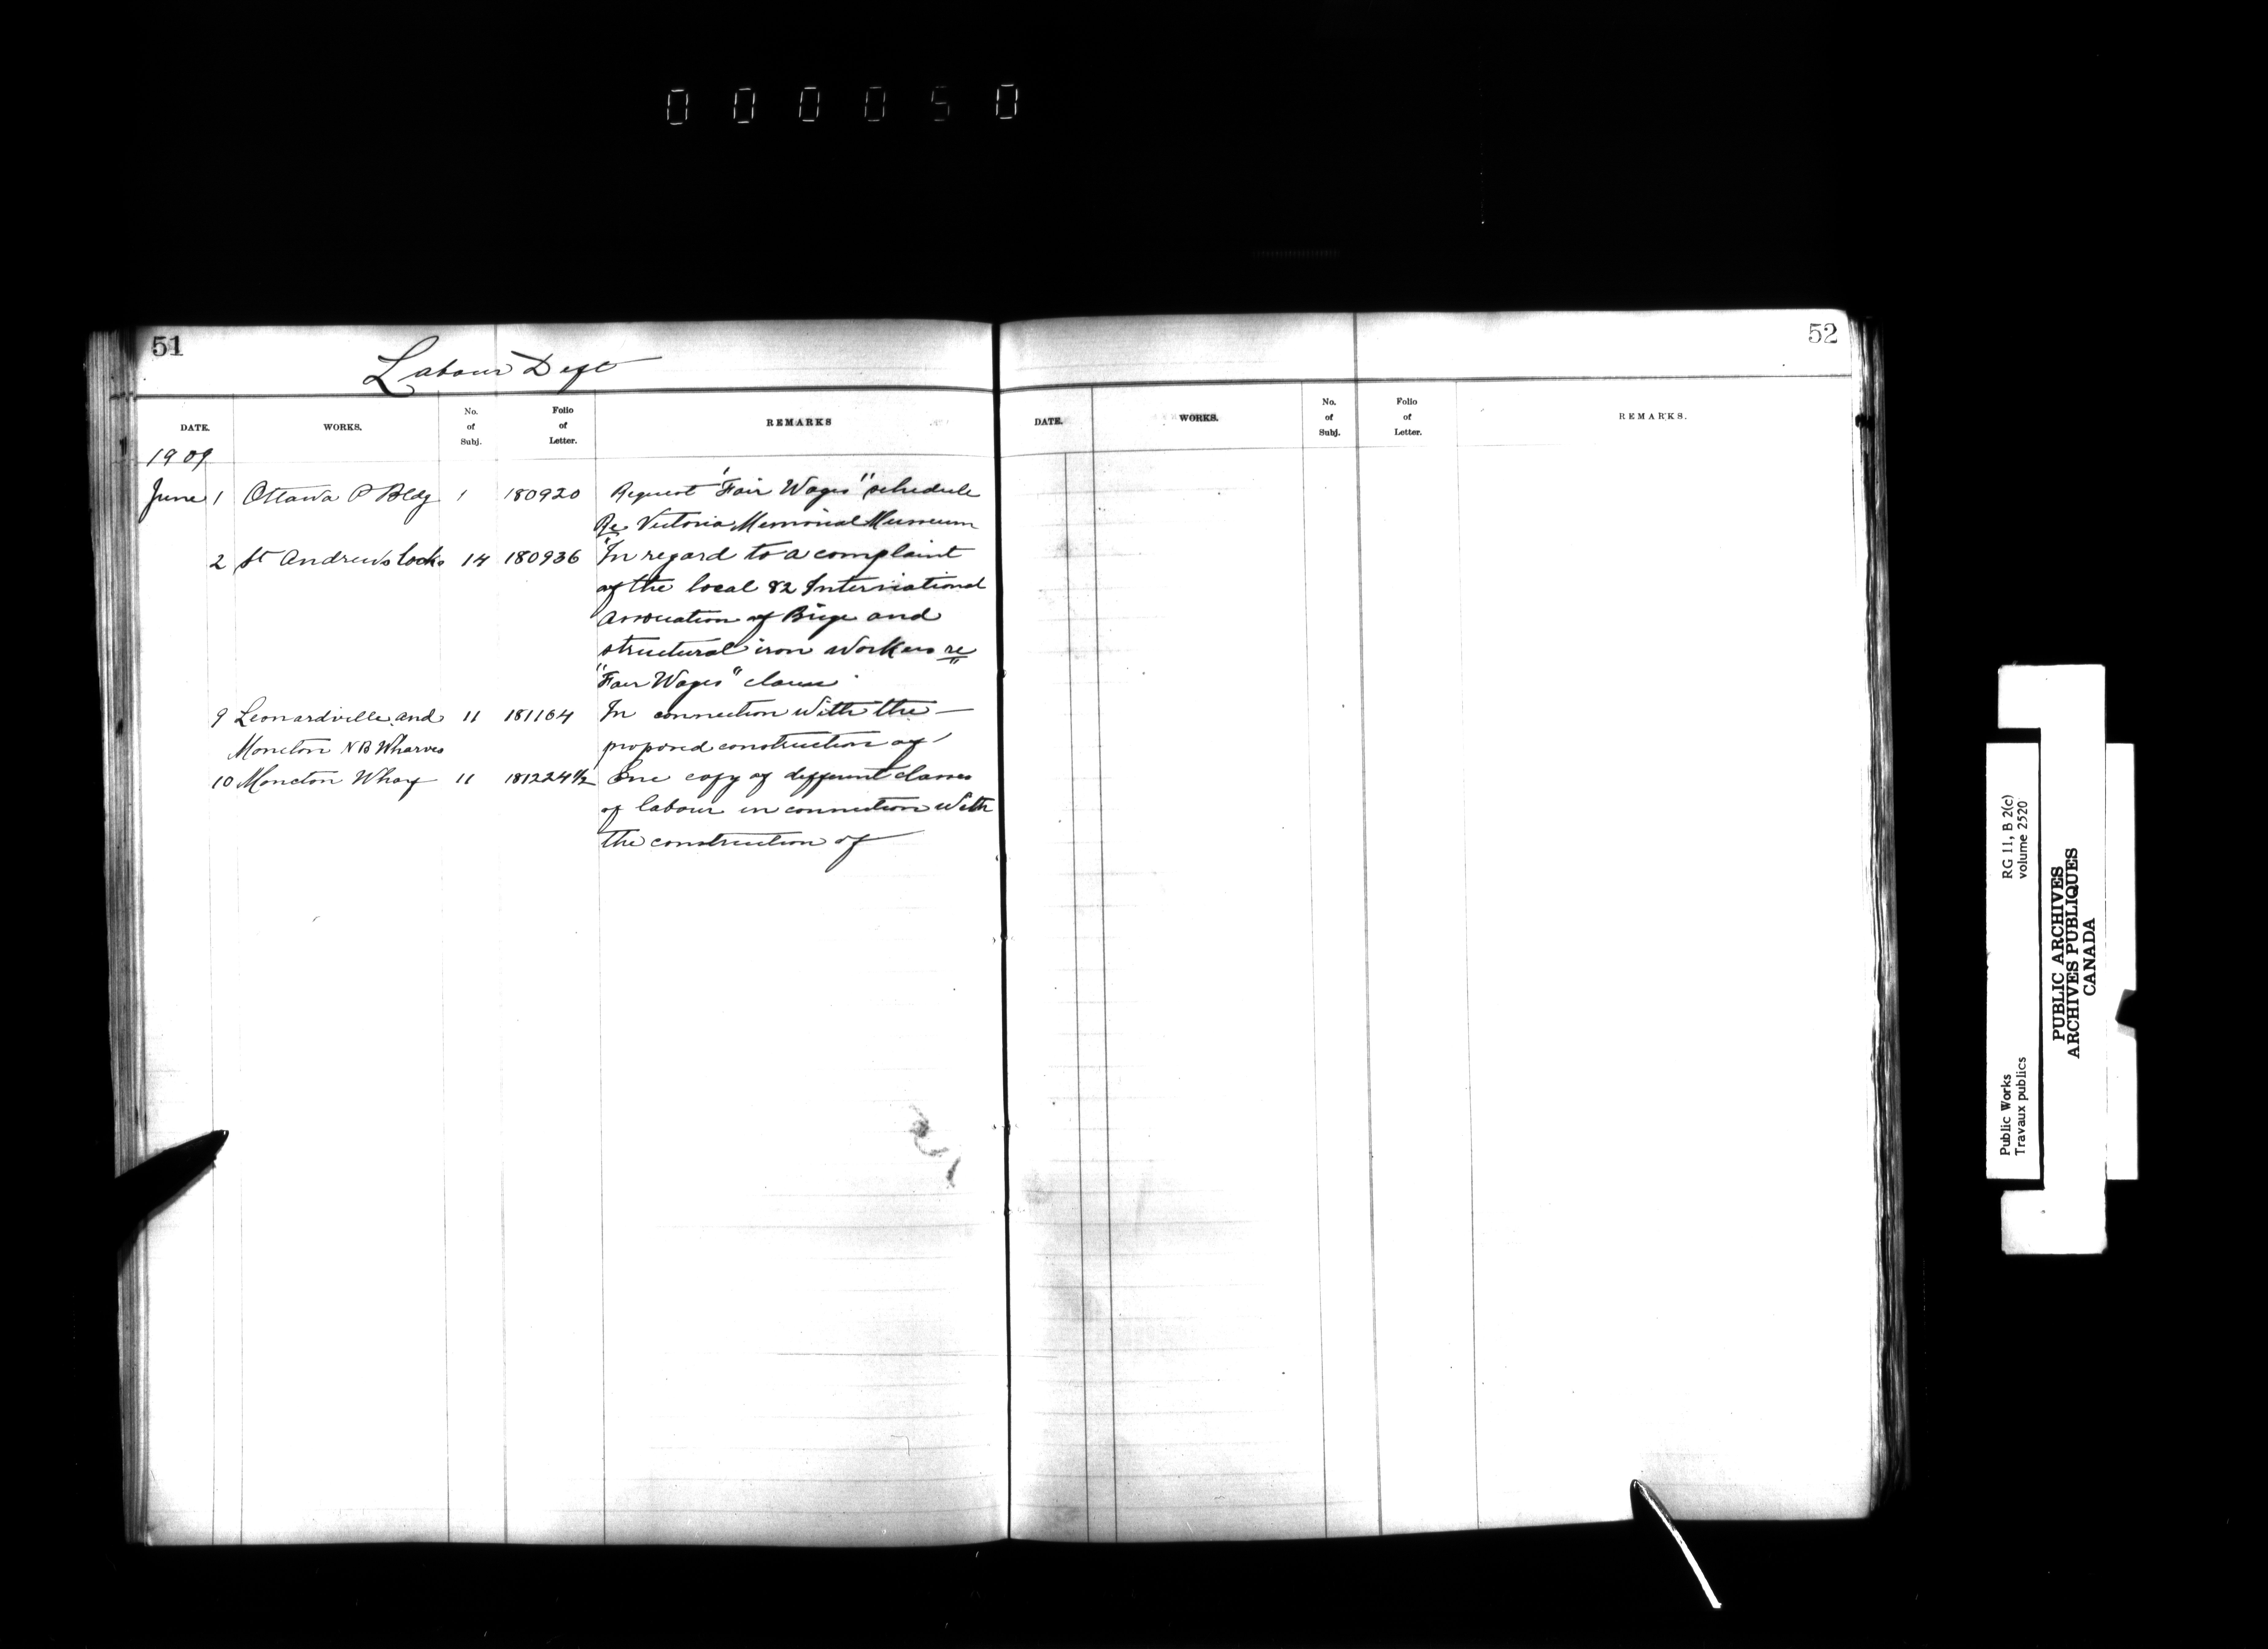 000050
51
Labour Dept
DATE. WORKS. No. of Subj. Folio of Letter. REMARKS
1909
June 1 Ottawa P Bldg 1 180920 Request "Fair Wages" schedule
Re Victoria Memorial Museum
2 St Andrews Locks 14 180936 In regard to a complaint
of the local 82 International
Association of Brige and
structural iron workers re
"Fair Wages" clause
9 Leonardville and 11 181164 In connection with the —
Moncton N B Wharves proposed construction of
10 Moncton Wharf 11 181224½ One copy of different classes
of labour in connection with
the construction of
52
DATE. WORKS. No. of Subj. Folio of Letter. REMARKS.
Public Works RG 11, B 2(c)
Travaux publics volume 2520
PUBLIC ARCHIVES
ARCHIVES PUBLIQUES
CANADA